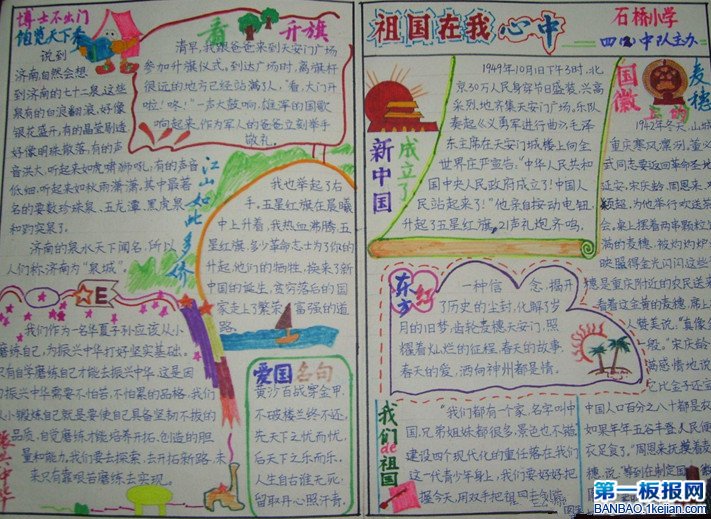 博士不出门
饱览天下秀
说到
济南自然会想
到济南的七十二泉这些
泉有的白浪翻滚,好像
银花盛开,有的晶莹剔透
好像明珠散落,有的声
音洪大,听起来如虎啸狮吼,有的声音
低细,听起来如秋雨潇潇,其中最著
名的要数珍珠泉、五龙潭、黑虎泉
和趵突泉了。
济南的泉水天下闻名,所以
人们称济南为“泉城”。
看升旗
清早,我跟爸爸来到天安门广场
参加升旗仪式,到达广场时,离旗杆
很近的地方已经站满了人,“看,大门开
啦!咚!”一声大鼓响,雄萍的国歌
响起来,作为军人的爸爸立刻举手
敬礼。
江山如此多娇
我也举起了右
手,五星红旗在晨曦
中上升着,我热血沸腾,五
星红旗,多少革命志士为了你的
升起,他们的牺牲,换来了新
中国的诞生,贫穷落后的国
家走上了繁荣富强的道
路。
我们作为一名华夏子孙应该从小
磨练自己,为振兴中华打好坚实基础,
只有自学磨练自己才能去振兴中华,这是因
为振兴中华需要不怕苦、不怕累的品格,我们
从小锻炼自己就是要使自己具备坚韧不拔的
品质,自觉磨练才能培养开拓、创造的胆
量和能力,我们要去探索,去开拓新路,未
来只有靠艰苦磨练去实现。
爱国名句
黄沙百战穿金甲,
不破楼兰终不还,
先天下之忧而忧,
后天下之乐而乐,
人生自古谁无死,
留取丹心照汗青,
祖国在我心中
石桥小学
四(2)中队主办
新中国成立了
1949年10月1日下午3时,北
京30万人民身穿节日盛装,兴高
采烈地齐集天安门广场,乐队
奏起《义勇军进行曲》,毛泽
东主席在天安门城楼上向全
世界庄严宣告:“中华人民共和
国中央人民政府成立了!中国人
民站起来了!”他亲自按动电钮,
升起了五星红旗,21声礼炮齐鸣。
国徽上的麦穗
1942年冬天,山城
重庆寒风凛冽,董必
武同志要返回革命圣地
延安,宋庆龄、周恩来、邓
颖超,为他举行欢送茶
会,桌上摆着两串颗粒
满的麦穗,被灼灼炉火
映照得金光闪闪这些麦
穗是重庆附近的农民送来
看着这金黄的麦穗,席上
人赞美说,“真像金
“宋庆龄
满感情地说
它比金子还宝
中国人口百分之八十都是农
如果年年五谷丰登人民便
衣足食了。”周恩来抚摸着麦
穗,说,等到
东方红
一种信念,揭开
了历史的尘封,化解了岁
月的旧梦,齿轮麦穗天安门,照
耀着灿烂的征程,春天的故事,
春天的爱,洒向神州都是情。
我们de祖国
“我们都有一个家,名字叫中
国,兄弟姐妹都很多,景色也不错
建设四个现代化的重任落在我们
这一代青少年身上,我们要好好把
握今天,用双手把祖国
第一板报网
BANBAO.1kejian.com